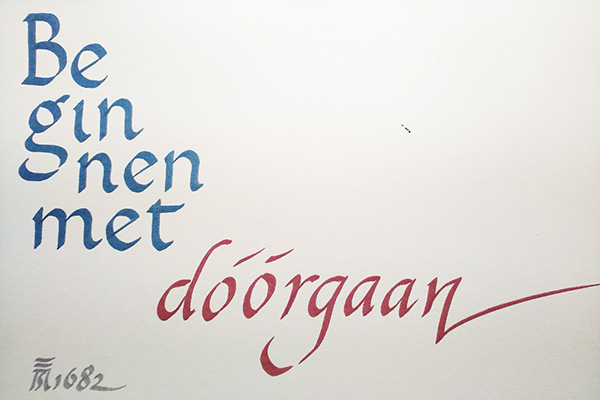 Be
gin
nen
met
dóórgaan
1682